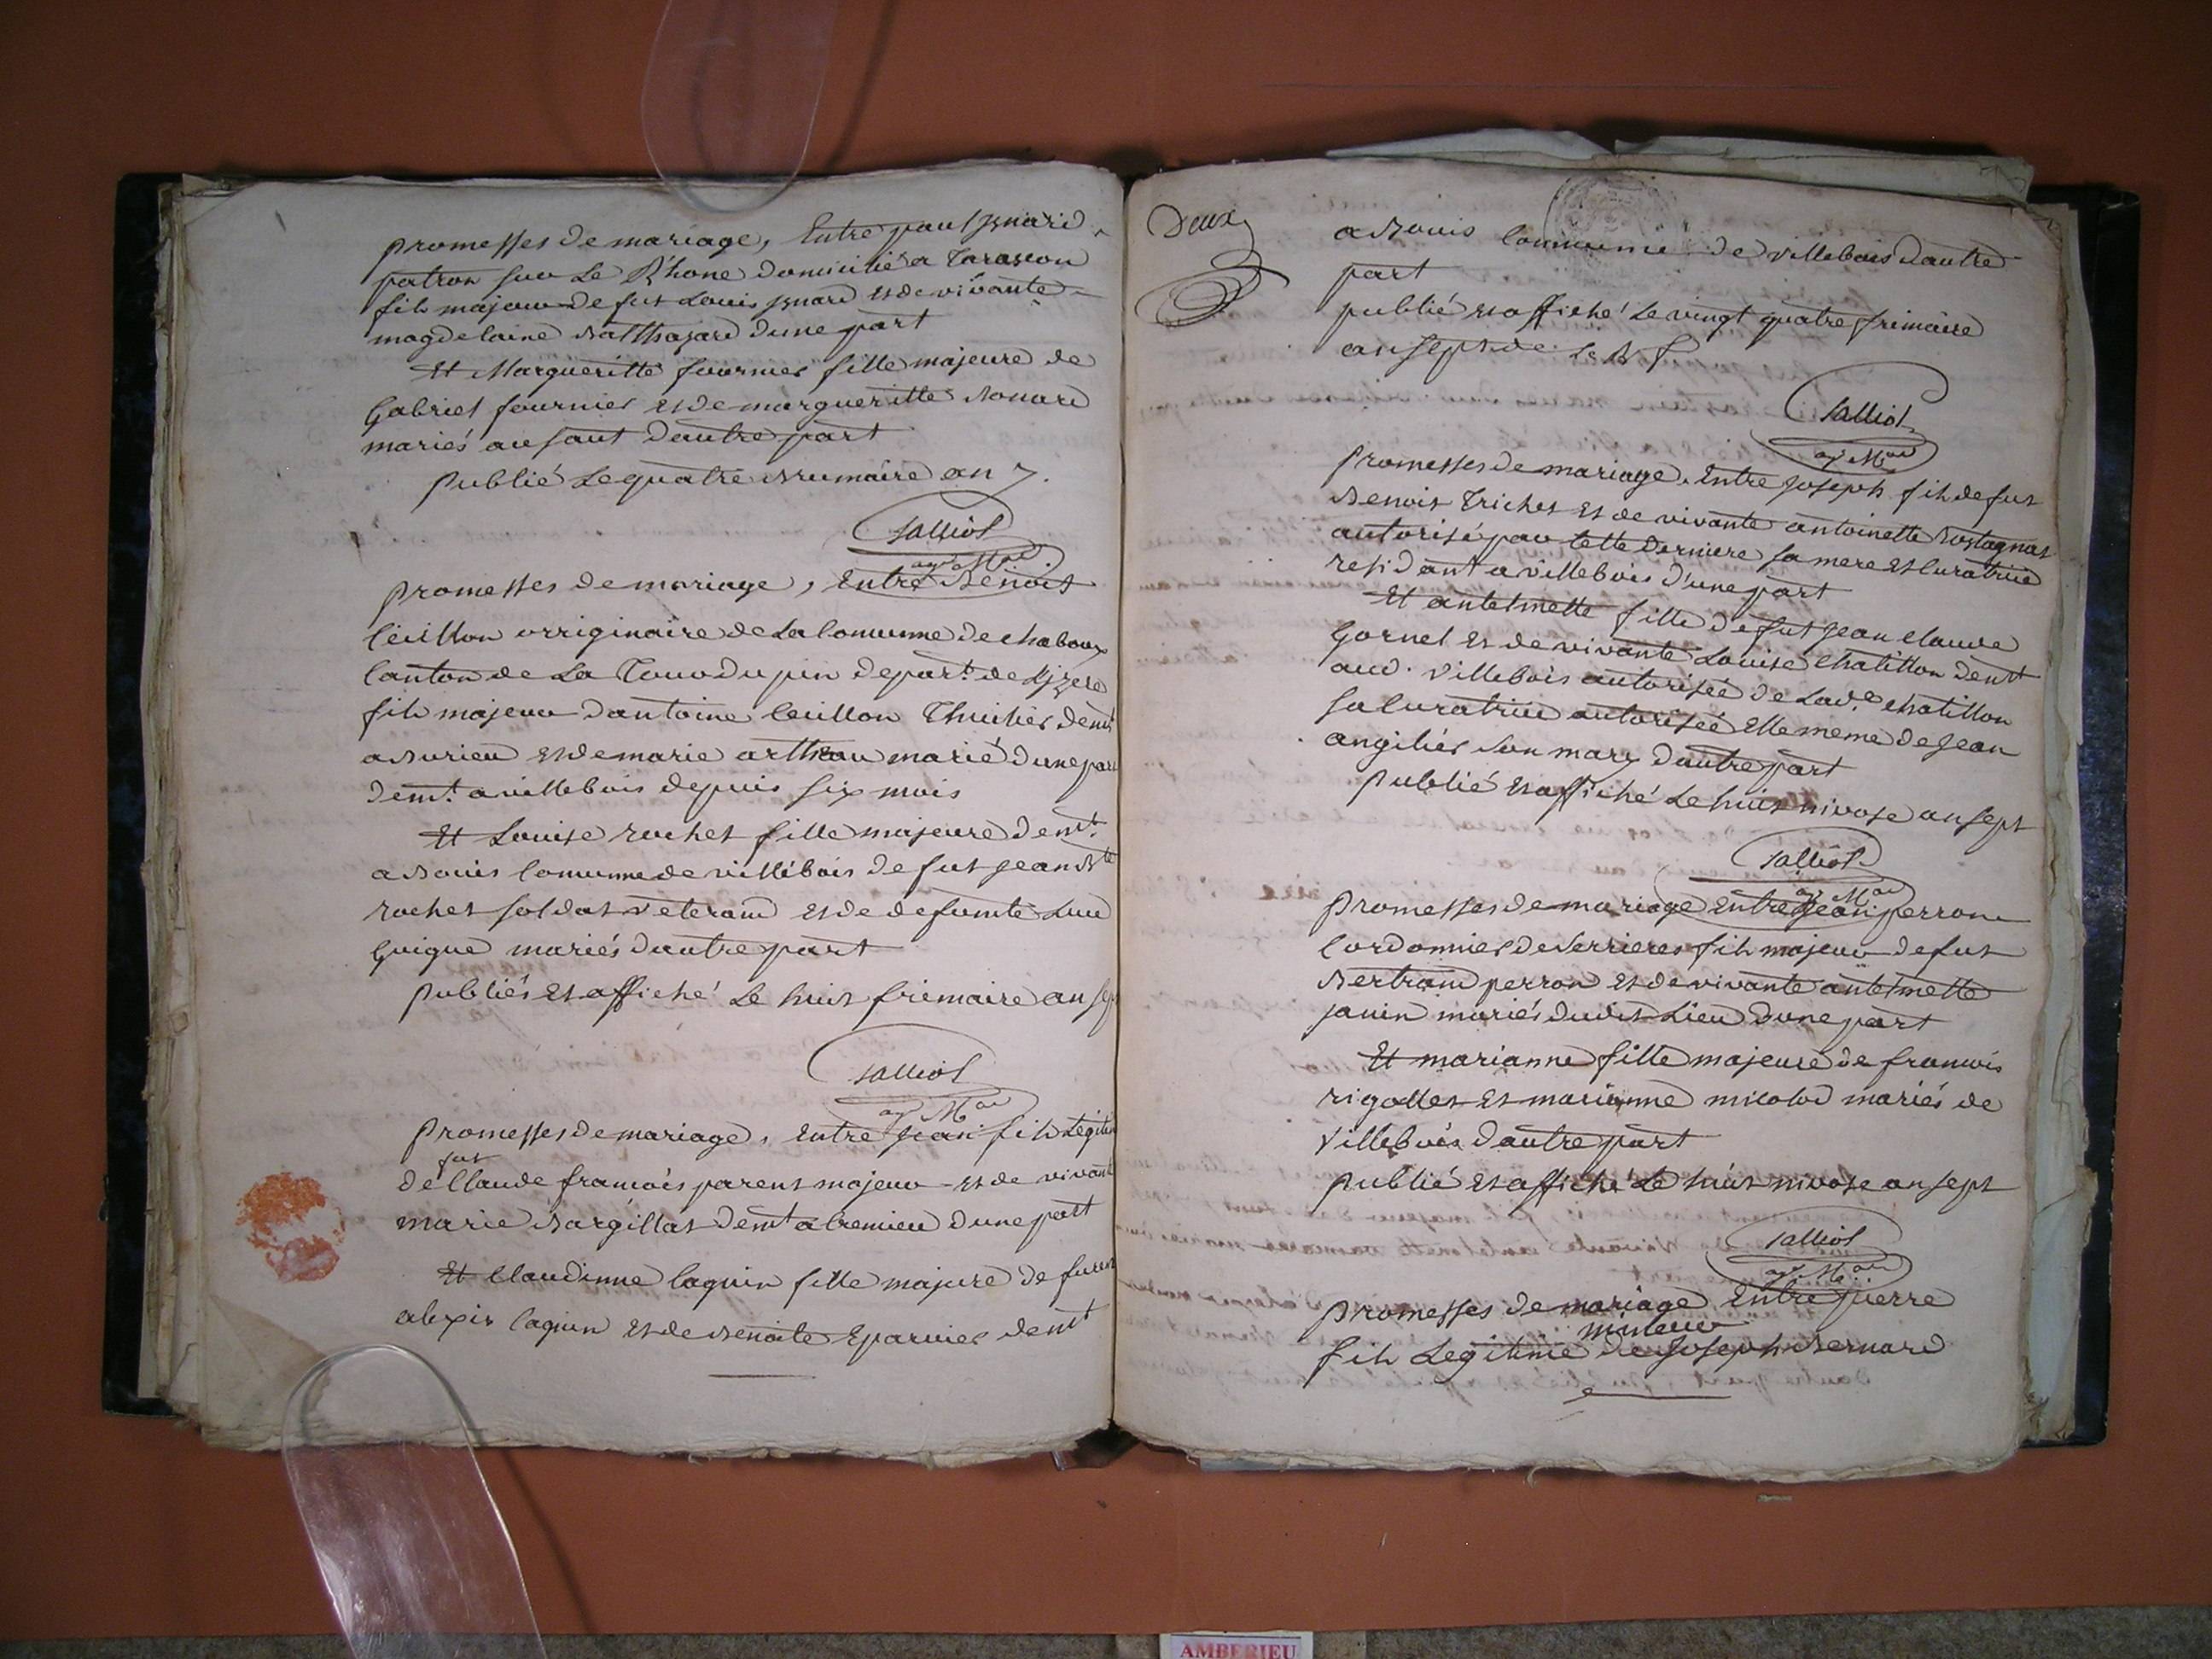 promesses de mariage, Entre paul jsnard
patron sur Le Rhone domicilié a Tarascon
fils majeur de fut Louis jsnard et de vivante
magdelaine Balthazard d'une part
Et Margueritte fournier fille majeure de
Gabriel fournier et de margueritte Bonard
mariés au saut d'autre part
Publié Le quatre Brumaire an 7.
Salliol
agt Mal
promesses de mariage, Entre Benoit
Ceuillon orriginaire de La Commune de chabons
Canton de La Tour du pin depart. de Ljzere
fils majeur d'antoine Ceuillon Thuilier demt
a Surieu et de marie artheau marié d'une part
demt. a villebois depuis six mois
Et Louise rochet fille majeure demt.
a Bouis Commune de villebois de fut jean Bte
rochet soldat veteran et de defunte Luce
Guigue mariés d'autre part
publiés et affiché Le huit frimaire an sept
Salliol
agt Mal
promesses de mariage, Entre jean fils Legitim
fut
de Claude francois parent majeur et de vivant
marie Bargillat demt a Cremieu d'une part
Et Claudinne Coquin fille majure de furent
alexis Coquin et de Benoite Eparvier demt
Deux
a Bouis Commune de villebois d'autre
part
publié et affiché Le vingt quatre frimaire
an sept de La R f
Salliol
agt Mal
promesses de mariage, Entre joseph fils de fut
Benoit Trichet et de vivante antoinette Rostagnat
autorisé par cette derniere sa mere et Curatrice
residant a villebois d'une part
Et antelmette fille de fut jean claude
Gornet et de vivante Louise Chatillon demt
aud. villebois autorisée de Lad.e chatillon
sa Curatrice autorisée Elle meme de jean
angilier son mary d'autre part
Publié et affiché Le huit nivose an sept
Salliol
agt Mal
promesses de mariage Entre jean perron
Cordonnier de Serrieres fils majeur de fut
Bertrand perron et de vivante antelmette
janin mariés dudit Lieu d'une part
Et marianne fille majeure de francois
rigollet et marianne micolod mariés de
villebois d'autre part
publié et affiché Le huit nivose an sept
Salliol
agt Mal
promesses de mariage Entre pierre
mineur
fils Legitime de joseph Bernard
AMBERIEU